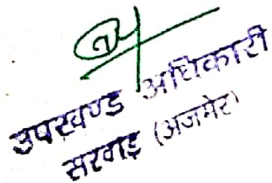 उपखण्ड अधिकारी
सरवाड़ (अजमेर)